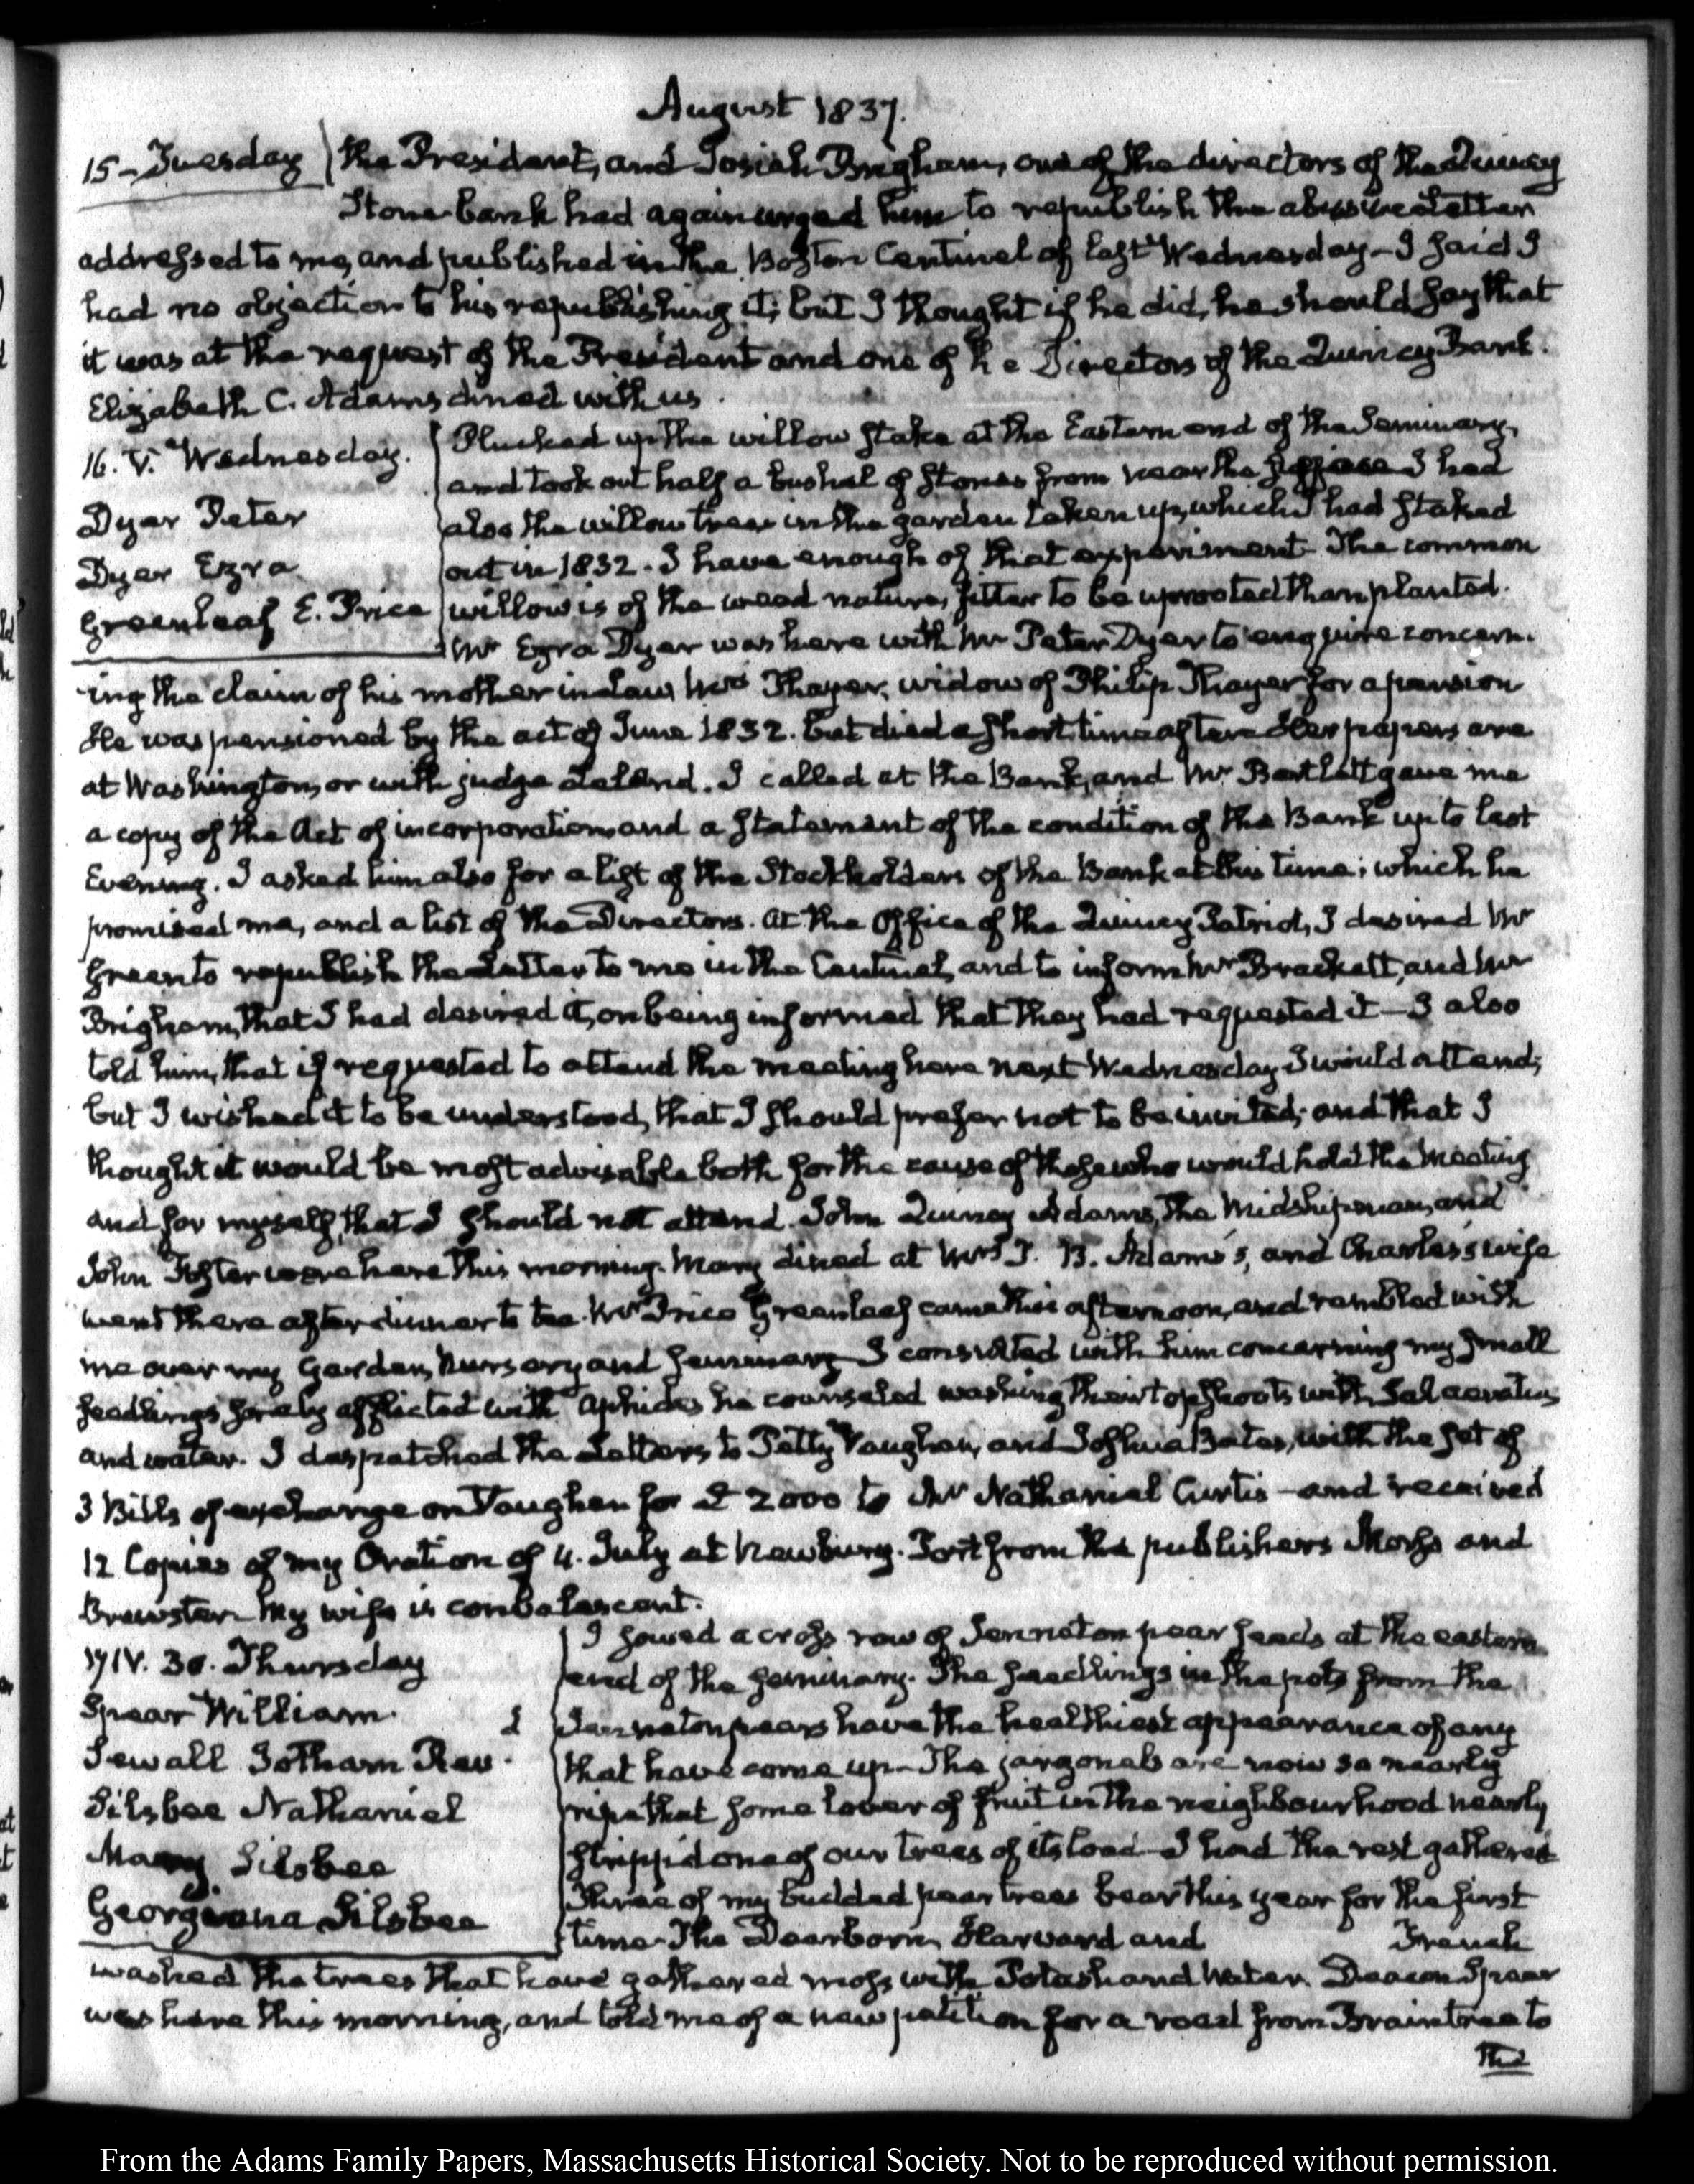 August 1837.
15 - Tuesday
the President, and Josiah Brigham, one of the directors of the Quincy
Stone-bank had again urged him to republish the abusive Letter
addressed to me, and published in the Boston Centinel of last Wednesday — I said I
had no objection to his republishing it; but I thought if he did, he should say that
it was at the request of the President and one of the Directors of the Quincy Bank.
Elizabeth C. Adams dined with us.
16. V. Wednesday.
Dyer Peter
Dyer Ezra
Greenleaf E. Price
Plucked up the willow stake at the Eastern end of the Seminary,
and took out half a bushel of stones from near the I had
also the willow trees in the garden taken up, which I had staked
out in 1832. I have enough of that experiment. The common
willow is of the weed nature, fitter to be uprooted than planted.
Mr Ezra Dyer was here with Mr Peter Dyer to enquire concern-
ing the claim of his mother in law, Mrs Thayer, widow of Philip Thayer for a pension
He was pensioned by the act of June 1832. but died a short time after. Her papers are
at Washington, or with judge Leland. I called at the Bank, and Mr Bartlett gave me
a copy of the Act of incorporation and a statement of the condition of the Bank up to last
Evening. I asked him also for a list of the Stockholders of the Bank at this time; which he
promised me, and a list of the Directors. At the Office of the Quincy Patriot, I desired Mr
Green to republish the Letter to me in the Centinel, and to inform Mr Brackett, and Mr
Brigham, that I had desired it, on being informed that they had requested it — I also
told him, that if requested to attend the meeting here next Wednesday I would attend;
but I wished it to be understood, that I should prefer not to be invited; and that I
thought it would be most advisable both for the cause of those who would hold the Meeting
and for myself, that I should not attend. John Quincy Adams, the Midshipman, and
John Foster were here this morning. Mary dined at Mrs T. B. Adams's, and Charles's wife
went there after dinner to tea. Mr Price Greenleaf came this afternoon, and rambled with
me over my Garden, Nursery and Seminary — I consulted with him concerning my small
seedlings sorely afflicted with Aphides he counseled washing their top shoots with Sal aeratus
and water. I despatched the Letters to Petty Vaughan, and Joshua Bates, with the set of
3 Bills of exchange on Vaughan for £ 2000 to Mr Nathaniel Curtis — and received
12 Copies of my Oration of 4. July at Newbury-Port from the publishers Morss and
Brewster — My wife is convalescent.
17. IV. 30. Thursday
Spear William.
Sewall Jotham Rev.
Silsbee Nathaniel
Mary Silsbee
Georgiana Silsbee
I sowed a cross row of Jenneton pear seeds at the eastern
end of the seminary. The seedlings in the pots from the
Jenneton pears have the healthiest appearance of any
that have come up — The jargonels are now so nearly
ripe that some lover of fruit in the neighbourhood nearly
stripp'd one of our trees of its load — I had the rest gathered
Three of my budded pear trees bear this year for the first
time — The Dearborn, Harvard and French
washed the trees that have gathered moss with Potash and Water. Deacon Spear
was here this morning, and told me of a new petition for a road from Braintree to
the
From the Adams Family Papers, Massachusetts Historical Society. Not to be reproduced without permission.